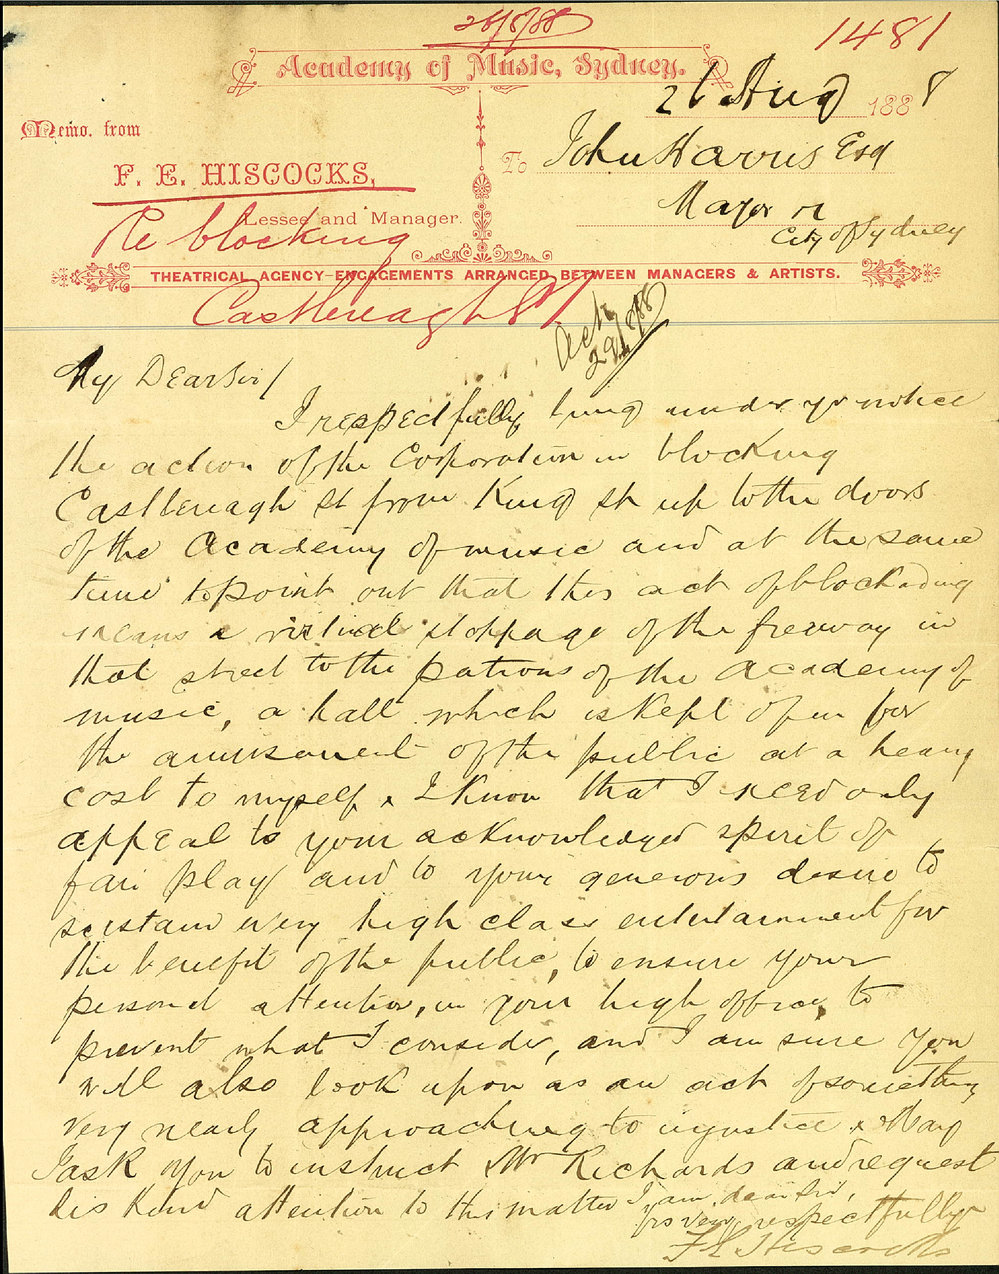 28/8/88
1481
Academy of Music, Sydney.
26 Aug 1888
Memo. from
To John Harris Esq
F. E. HISCOCKS,
Mayor
Lessee and Manager.
City of Sydney
Re blocking
THEATRICAL AGENCY-ENGAGEMENTS ARRANGED BETWEEN MANAGERS & ARTISTS.
Castlereagh St
29/8/88
My Dear Sir/
I respectfully bring under yr notice
the action of the Corporation in blocking
Castlereagh St from King St up to the doors
of the Academy of music and at the same
time to point out that this act of blockading
means a virtual stoppage of the freeway in
that street to the patrons of the Academy of
music, a hall which is kept open for
the amusement of the public at a heavy
cost to myself & I know that I need only
appeal to your acknowledged spirit of
fair play and to your generous desire to
sustain every high class entertainment for
the benefit of the public, to ensure your
personal attention, in your high office, to
prevent what I consider, and I am sure you
will also look upon as an act of something
very nearly approaching to injustice & May
I ask you to instruct Mr Richards and request
his kind attention to this matter
I am dear Sir,
yrs very respectfully
F E Hiscocks